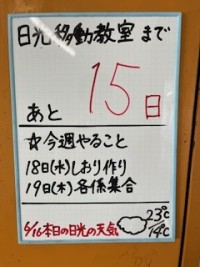 日光移動教室まで
あと 15日
☆今週やること
18日(水)しおり作り
19日(木)各係集合
6/16本日の日光の天気 23℃/14℃